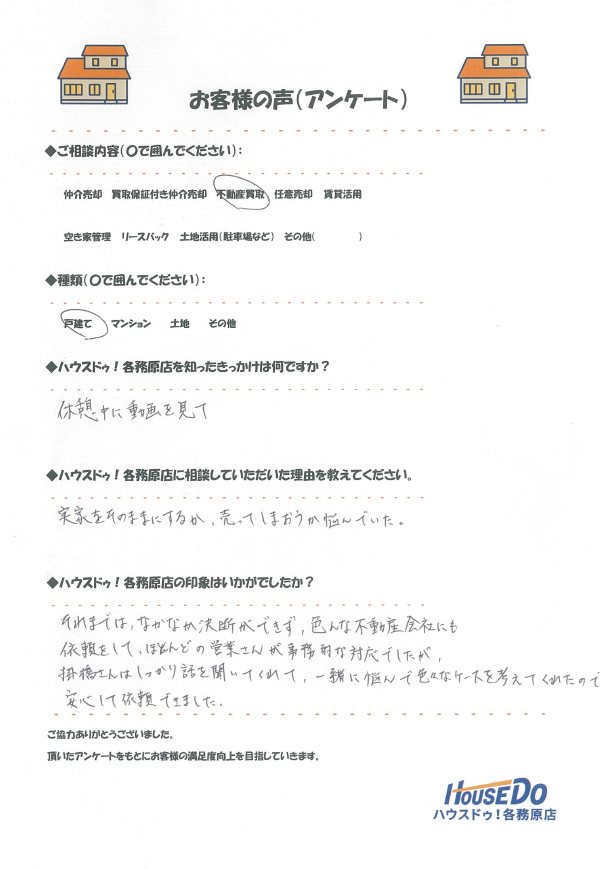 お客様の声(アンケート)
◆ご相談内容(〇で囲んでください):
仲介売却 買取保証付き仲介売却 不動産買取 任意売却 賃貸活用
空き家管理 リースバック 土地活用(駐車場など) その他( )
◆種類(〇で囲んでください):
戸建て マンション 土地 その他
◆ハウスドゥ!各務原店を知ったきっかけは何ですか?
休憩中に動画を見て
◆ハウスドゥ!各務原店に相談していただいた理由を教えてください。
実家をそのままにするか、売ってしまおうか悩んでいた。
◆ハウスドゥ!各務原店の印象はいかがでしたか?
それまでは、なかなか決断ができず、色んな不動産会社にも
依頼をして、ほとんどの営業さんが事務的な対応でしたが、
掛橋さんはしっかり話を聞いてくれて、一緒に悩んで色々なケースを考えてくれたので
安心して依頼できました。
ご協力ありがとうございました。
頂いたアンケートをもとにお客様の満足度向上を目指していきます。
HOUSEDO
ハウスドゥ!各務原店